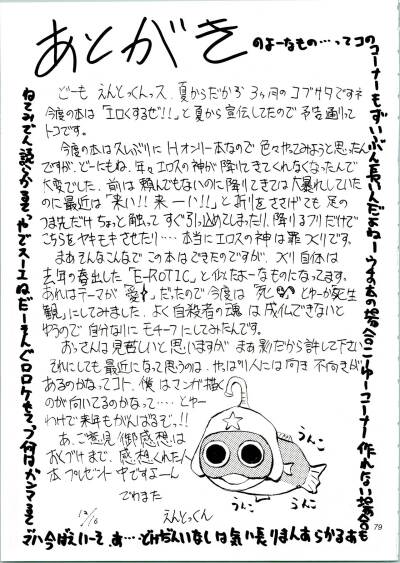 あとがき
のよーなもの…ってコの
コーナーもずいぶん長いんだよねー
どーも えんとっくんッス. 夏からだから3ヶ月のコブサタですネ
今度の本は「エロくするぜ!!」と夏から宣伝してたので予告通りって
トコです.
今度の本は久しぶりにHオンリー本なので色々やってみようと思ったん
ですが、どーにもね、年々エロスの神が降りてきてくれなくなったんで
大変でした. 前は頼んでもないのに降りてきては大暴れしていた
のに最近は「来い!! 来ーい!!」と祈りをささげても足の
つま先だけちょっと触ってすぐ引っ込めてしまったり、降りるフリだけで
こちらをヤキモキさせたり…本当にエロスの神は罪づくりです.
まぁそんなこんなでこの本はできたのですが、つくり自体は
去年の春出した「E-ROTIC」と似たよーなものになってます.
あれはテーマが「愛」だったので今度は「死」とゆーか死生
観」にしてみました. よく自殺者の魂は成仏できないと
ゆうので自分なりにモチーフにしてみたんです.
おっさんは見苦しいと思いますが まぁ影だから許して下さい
それにしても最近になって思うのは、やっぱり人には向き不向きが
あるのかなってコト、僕はマンガ描く
のが向いてるのかなって…. とゆー
わけで来年もがんばるぞっ!!
あ、ご意見 御感想は
おくづけまで、感想くれた人
本プレゼント中ですよーん
でわまた
12/16
えんとっくん
うんこ
うんこ
うんこ
79